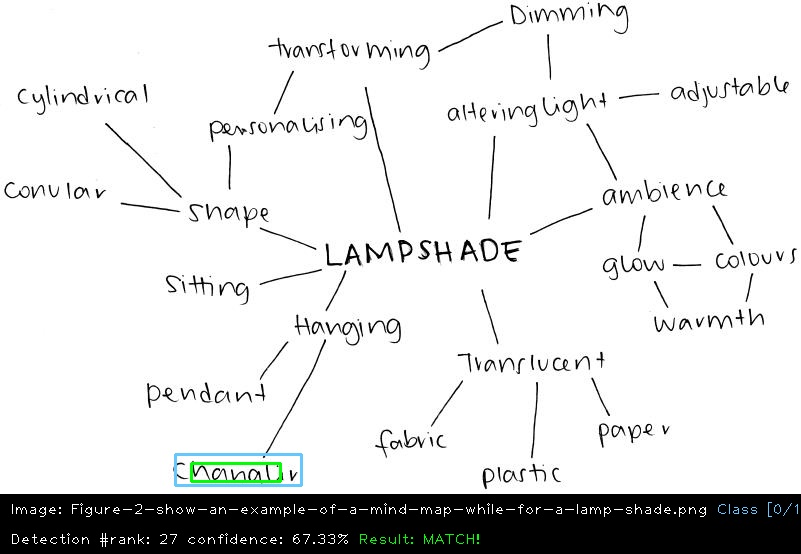 Dimming
transforming
cylindrical
adjustable
alteringlight
personalising
conular
shape
ambience
LAMPSHADE
glow
colours
sitting
Hanging
warmth
Translucent
pendant
fabric
paper
plastic
Image: Figure-2-show-an-example-of-a-mind-map-while-for-a-lamp-shade.png Class [0/1
Detection #rank: 27 confidence: 67.33% Result: MATCH!